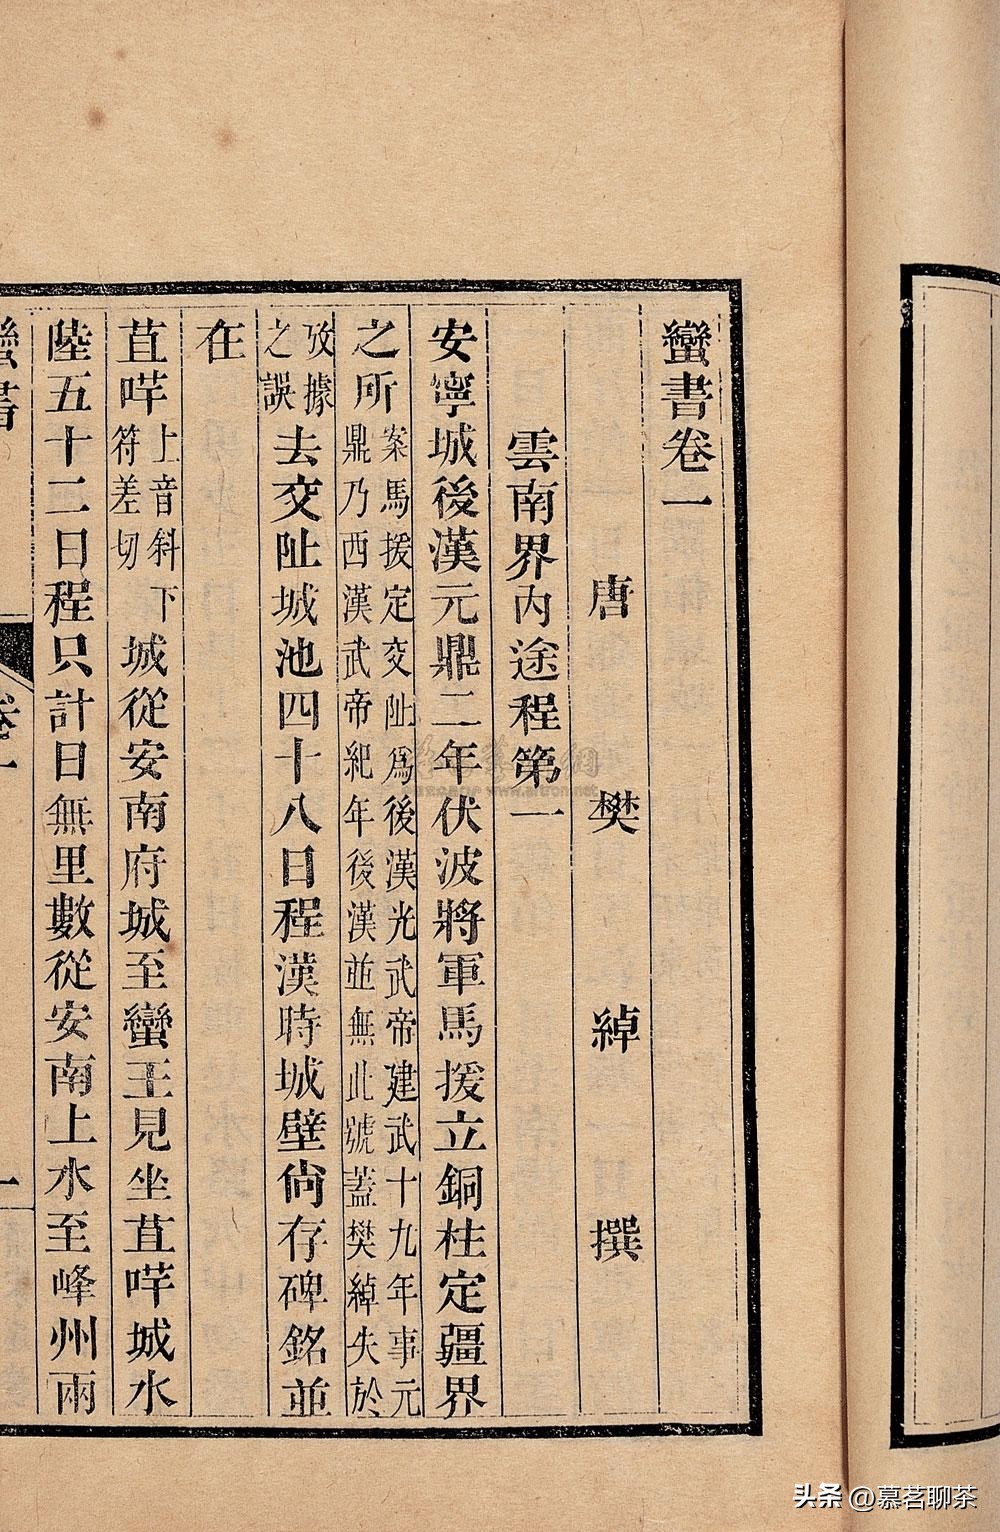 蠻書卷一
唐樊綽撰
雲南界內途程第一
安寧城後漢元鼎二年伏波將軍馬援立銅柱定疆界
之所案馬援定交阯爲後漢光武帝建武十九年事元鼎乃西漢武帝紀年後漢並無此號蓋樊綽失於
攷據之誤去交阯城池四十八日程漢時城壁尙存碑銘並
在
苴哶上音斜下符差切城從安南府城至蠻王見坐苴哶城水
陸五十二日程只計日無里數從安南上水至峰州兩
蠻書
卷一
一
www.artron.net
头条 @慕茗聊茶